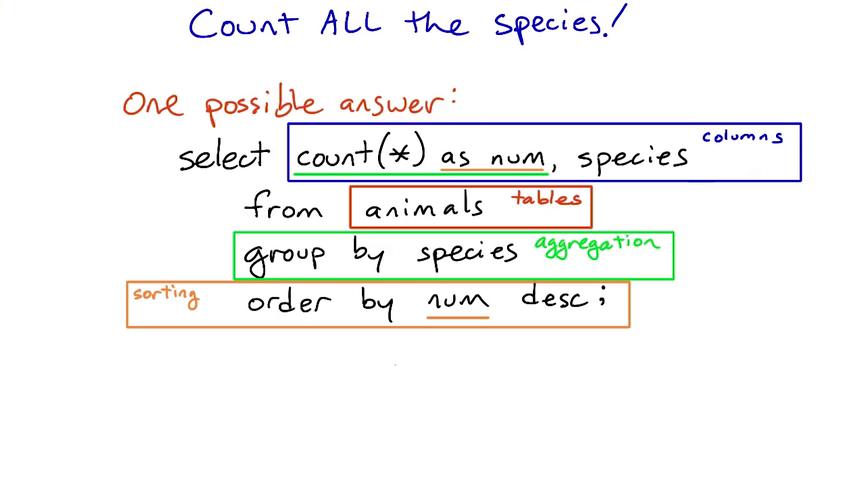 Count ALL the species!
One possible answer:
select count(*) as num, species columns
from animals tables
group by species aggregation
sorting order by num desc;